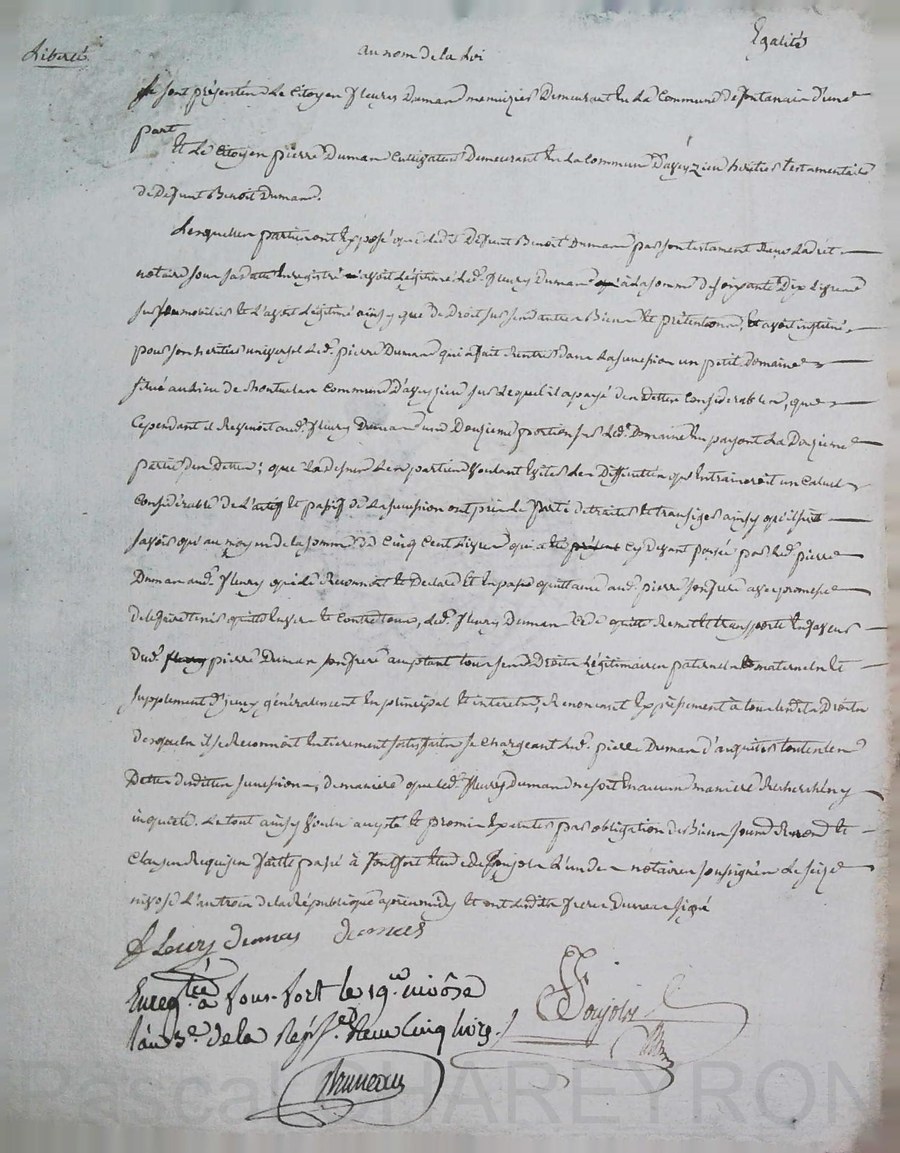 Liberté au nom de la Loi Egalité
Se sont présentés Le Citoyen fleury Dumas menuizier Demeurant En La Commune de fontanais d'une
part
Et Le Citoyen pierre Dumas Cultivateur Demeurant En La Commune D'aveyzieu heritier testamentaire
de Défunt Benoit Dumas.
Lesquelles parties ont Exposé que ledit Défunt Benoit Dumas par son testament Reçu
notaire sous sa date Enregistré avoit Légitimé Led. fleury Dumas à La somme de soixante Dix Livres
sur son mobilier Et L'avoit Légitimé ainsy que de Droit sur ses autres Biens Et prétentions, Et avoit institué
pour son heritier universel Led. pierre Dumas qui a fait Rentrer Dans La sucession un petit Domaine
situé au Lieu de Commune D'aveyzieu sur Lequel il a payé des Dettes Considerables, que
Cependant il Revenoit aud. fleury Dumas une Douzieme portion sur Led. Domaine En payant La Douzieme
partie des Dettes; que Les parties voulant Eviter Les Difficultés qu'Entraineroit un Calcul
Considérable de L'actif Et passif de La sucession ont pris Le parti de traiter Et transiger ainsy qu'il suit
savoir qu'au moyen de La somme de Cinq Cent Livres qui a été présent Cy devant payée par Led. pierre
Dumas aud. fleury qui Le Reconnoit Et Declare Et En passe quittance aud. pierre son frere avec promesse
de le faire tenir quitte Envers Et Contre tous, Led. fleury Dumas Cede quitte Remet Et transporte En faveur
dud. fleury pierre Dumas son frere acceptant tous ses Droits Légitimaires paternels Et maternels Et
supplement D'yceux généralement En principal Et interets, Renoncant Expressement à tous lesdits Droits
Desquels il se Reconnoit Entierement satisfait se Chargeant Led. pierre Dumas d'acquiter toutes les
Dettes desdittes sucessions, de maniere que Led. fleury Dumas ne soit En aucune maniere Recherché ny
inquieté. Le tout ainsy voulu accepté Et promis Executer par obligation de Biens soumis Renoncé Et
Clauses Requises fait Et passé à fontfort Etude de Ponjolis L'un des notaires soussignés Le seize
nivose L'an trois de la République après midy Et ont Lesdits freres Dumas signé
fleury dumas dumas
Enregtré à fons-fort le 19.e nivôse
l'an 3.e de la Repl. Reçu Cinq livres
Bruneau
Pascal CHAREYRON